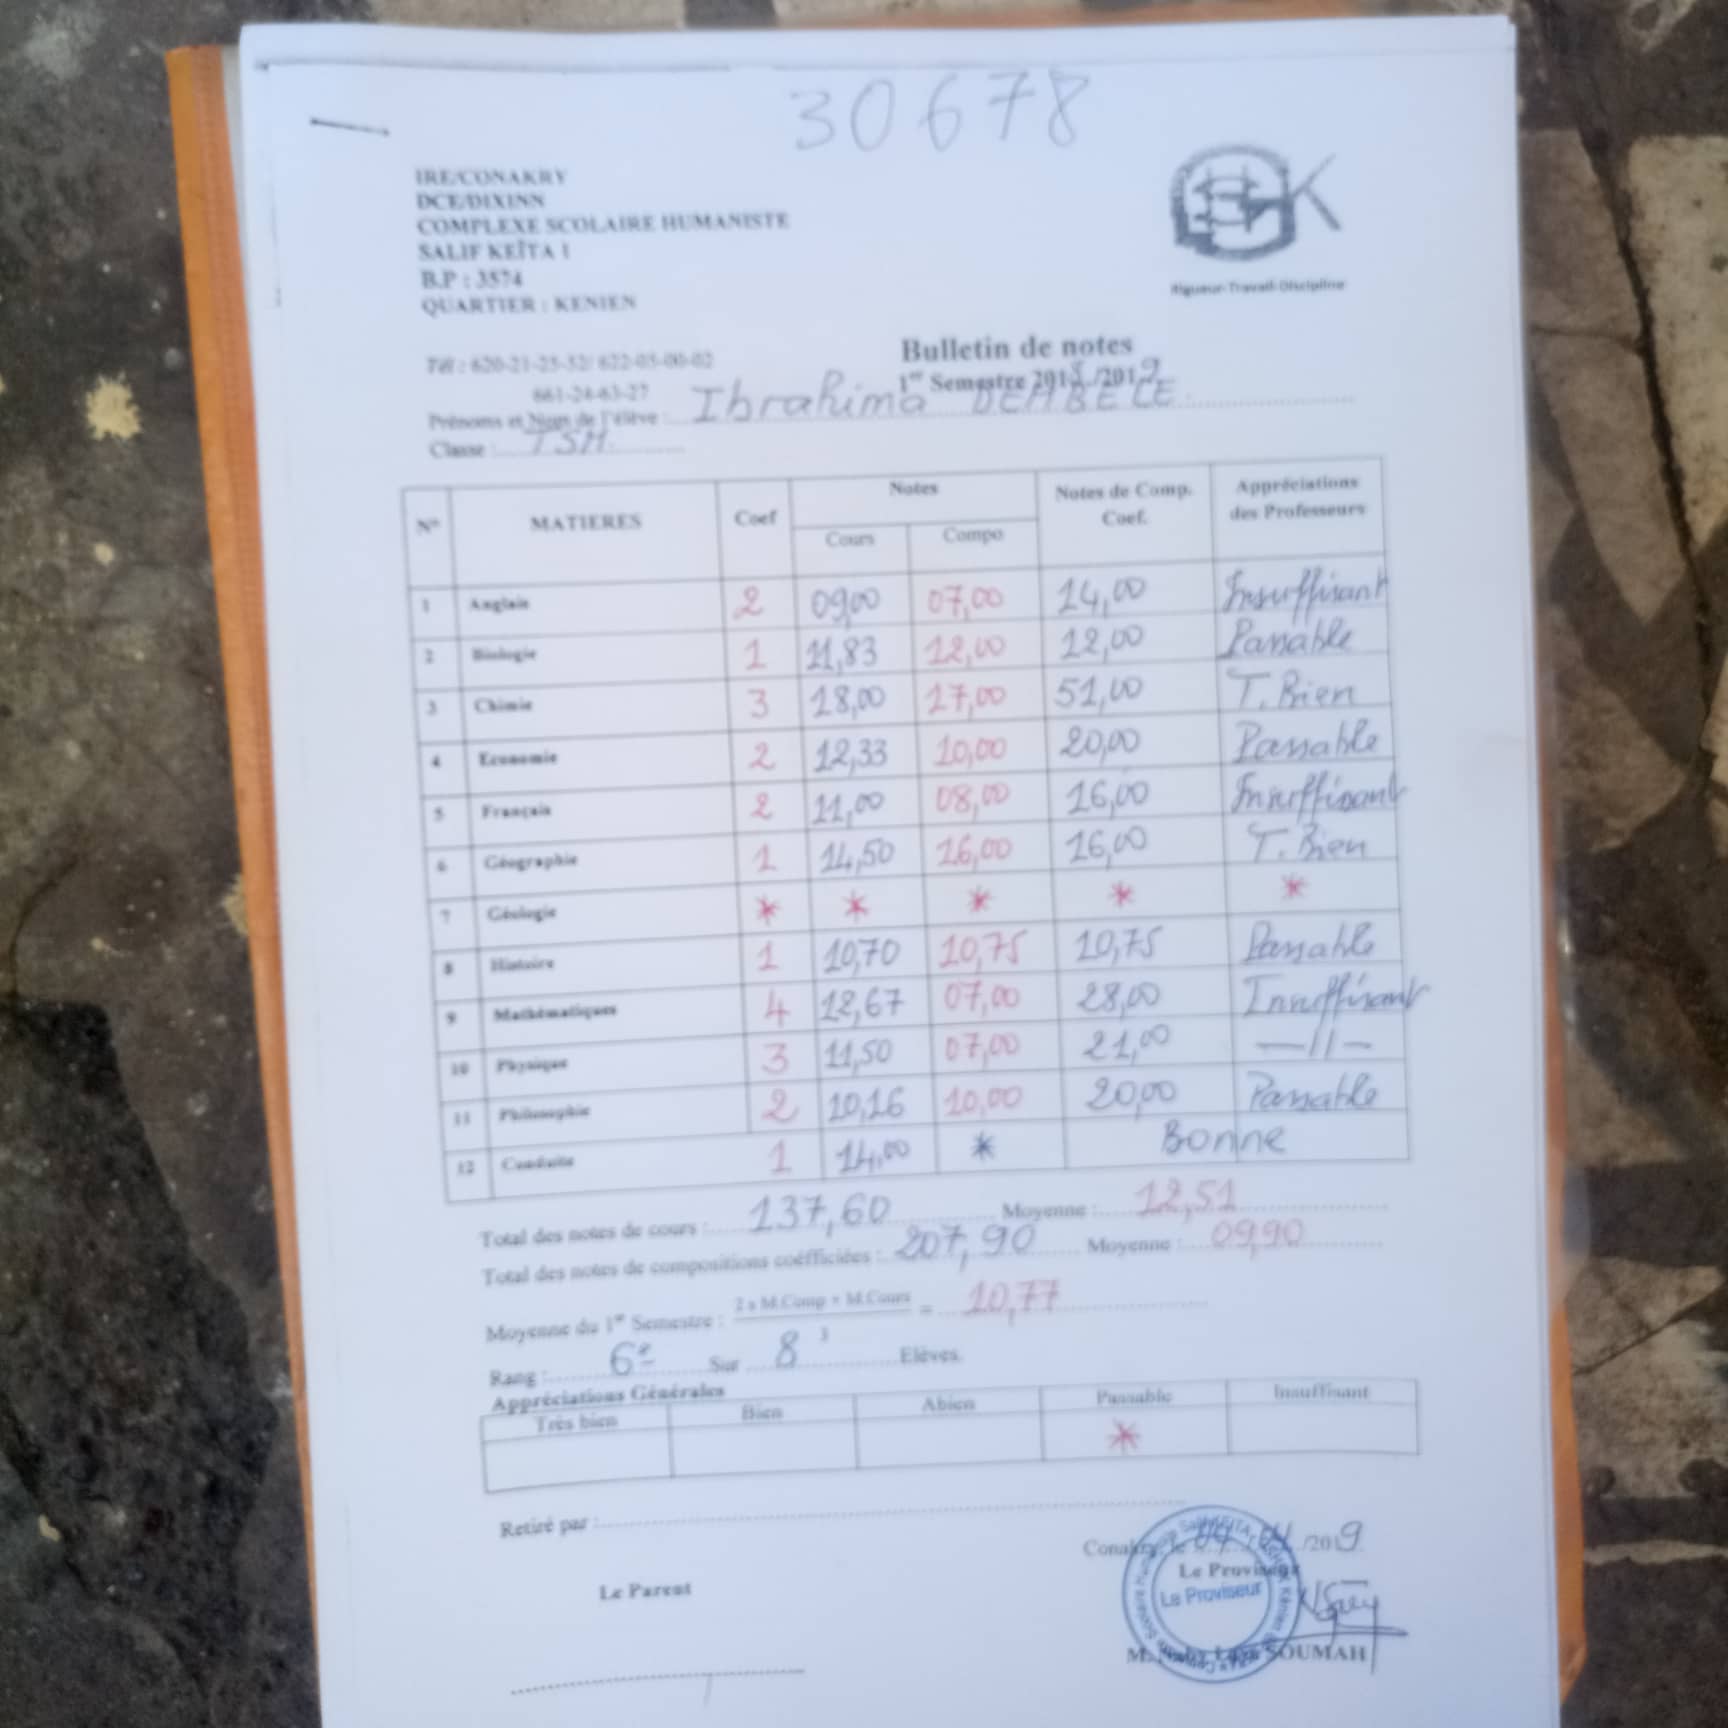 30678
IRE/CONAKRY
DCE/DIXINN
COMPLEXE SCOLAIRE HUMANISTE
SALIF KEÏTA 1
B.P : 3574
QUARTIER : KENIEN
Rigueur-Travail-Discipline
Tél : 620-21-25-52/ 622-05-00-02
661-24-63-27
Bulletin de notes
1er Semestre 2018/2019
Prénoms et Nom de l'élève : Ibrahima DEMBELE
Classe : TSM
N° MATIERES Coef Notes Notes de Comp. Coef. Appréciations des Professeurs
Cours Compo
1 Anglais 2 09,00 07,00 14,00 Insuffisant
2 Biologie 1 11,83 12,00 12,00 Passable
3 Chimie 3 18,00 17,00 51,00 T. Bien
4 Economie 2 12,33 10,00 20,00 Passable
5 Français 2 11,00 08,00 16,00 Insuffisant
6 Géographie 1 14,50 16,00 16,00 T. Bien
7 Géologie * * * * *
8 Histoire 1 10,70 10,75 10,75 Passable
9 Mathématiques 4 12,67 07,00 28,00 Insuffisant
10 Physique 3 11,50 07,00 21,00 —//—
11 Philosophie 2 10,16 10,00 20,00 Passable
12 Conduite 1 14,00 * Bonne
Total des notes de cours : 137,60 Moyenne : 12,51
Total des notes de compositions coéfficiées : 207,90 Moyenne : 09,90
Moyenne du 1er Semestre : 2 x M.Comp + M.Cours = 10,77
3
Rang : 6e Sur 8 Elèves.
Appréciations Générales
Très bien Bien Abien Passable Insuffisant
*
Retiré par :
Conakry, le /2019
Le Parent
Le Proviseur
Le Proviseur
SOUMAH